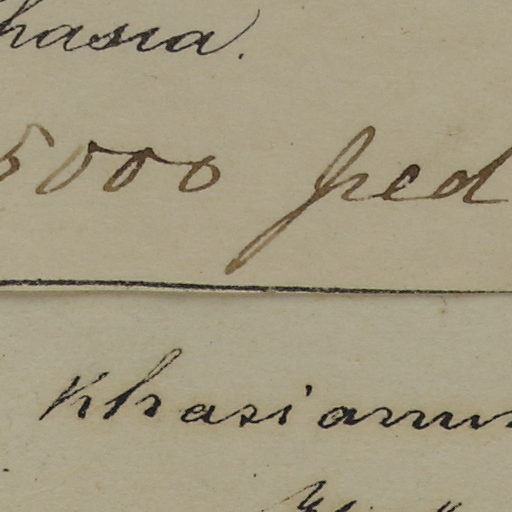 hasia.
5000 ped
Khasianum